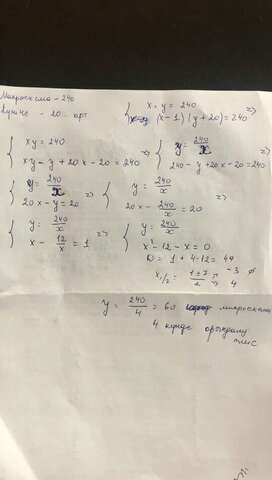 Микросхема - 240
Күніне - 20 арт
{ x · y = 240
(x - 1) (y + 20) = 240 =>
{ xy = 240
xy - y + 20x - 20 = 240 =>
{ y = 240/x
240 - y + 20x - 20 = 240
{ y = 240/x
20x - y = 20 =>
{ y = 240/x
20x - 240/x = 20
{ y = 240/x
x - 12/x = 1 =>
{ y = 240/x
x² - 12 - x = 0
D = 1 + 4·12 = 49
x₁/₂ = (1 ± 7)/2 = -3 ∅
4
y = 240/4 = 60 микросхема
4 күнде орындалу
тиіс